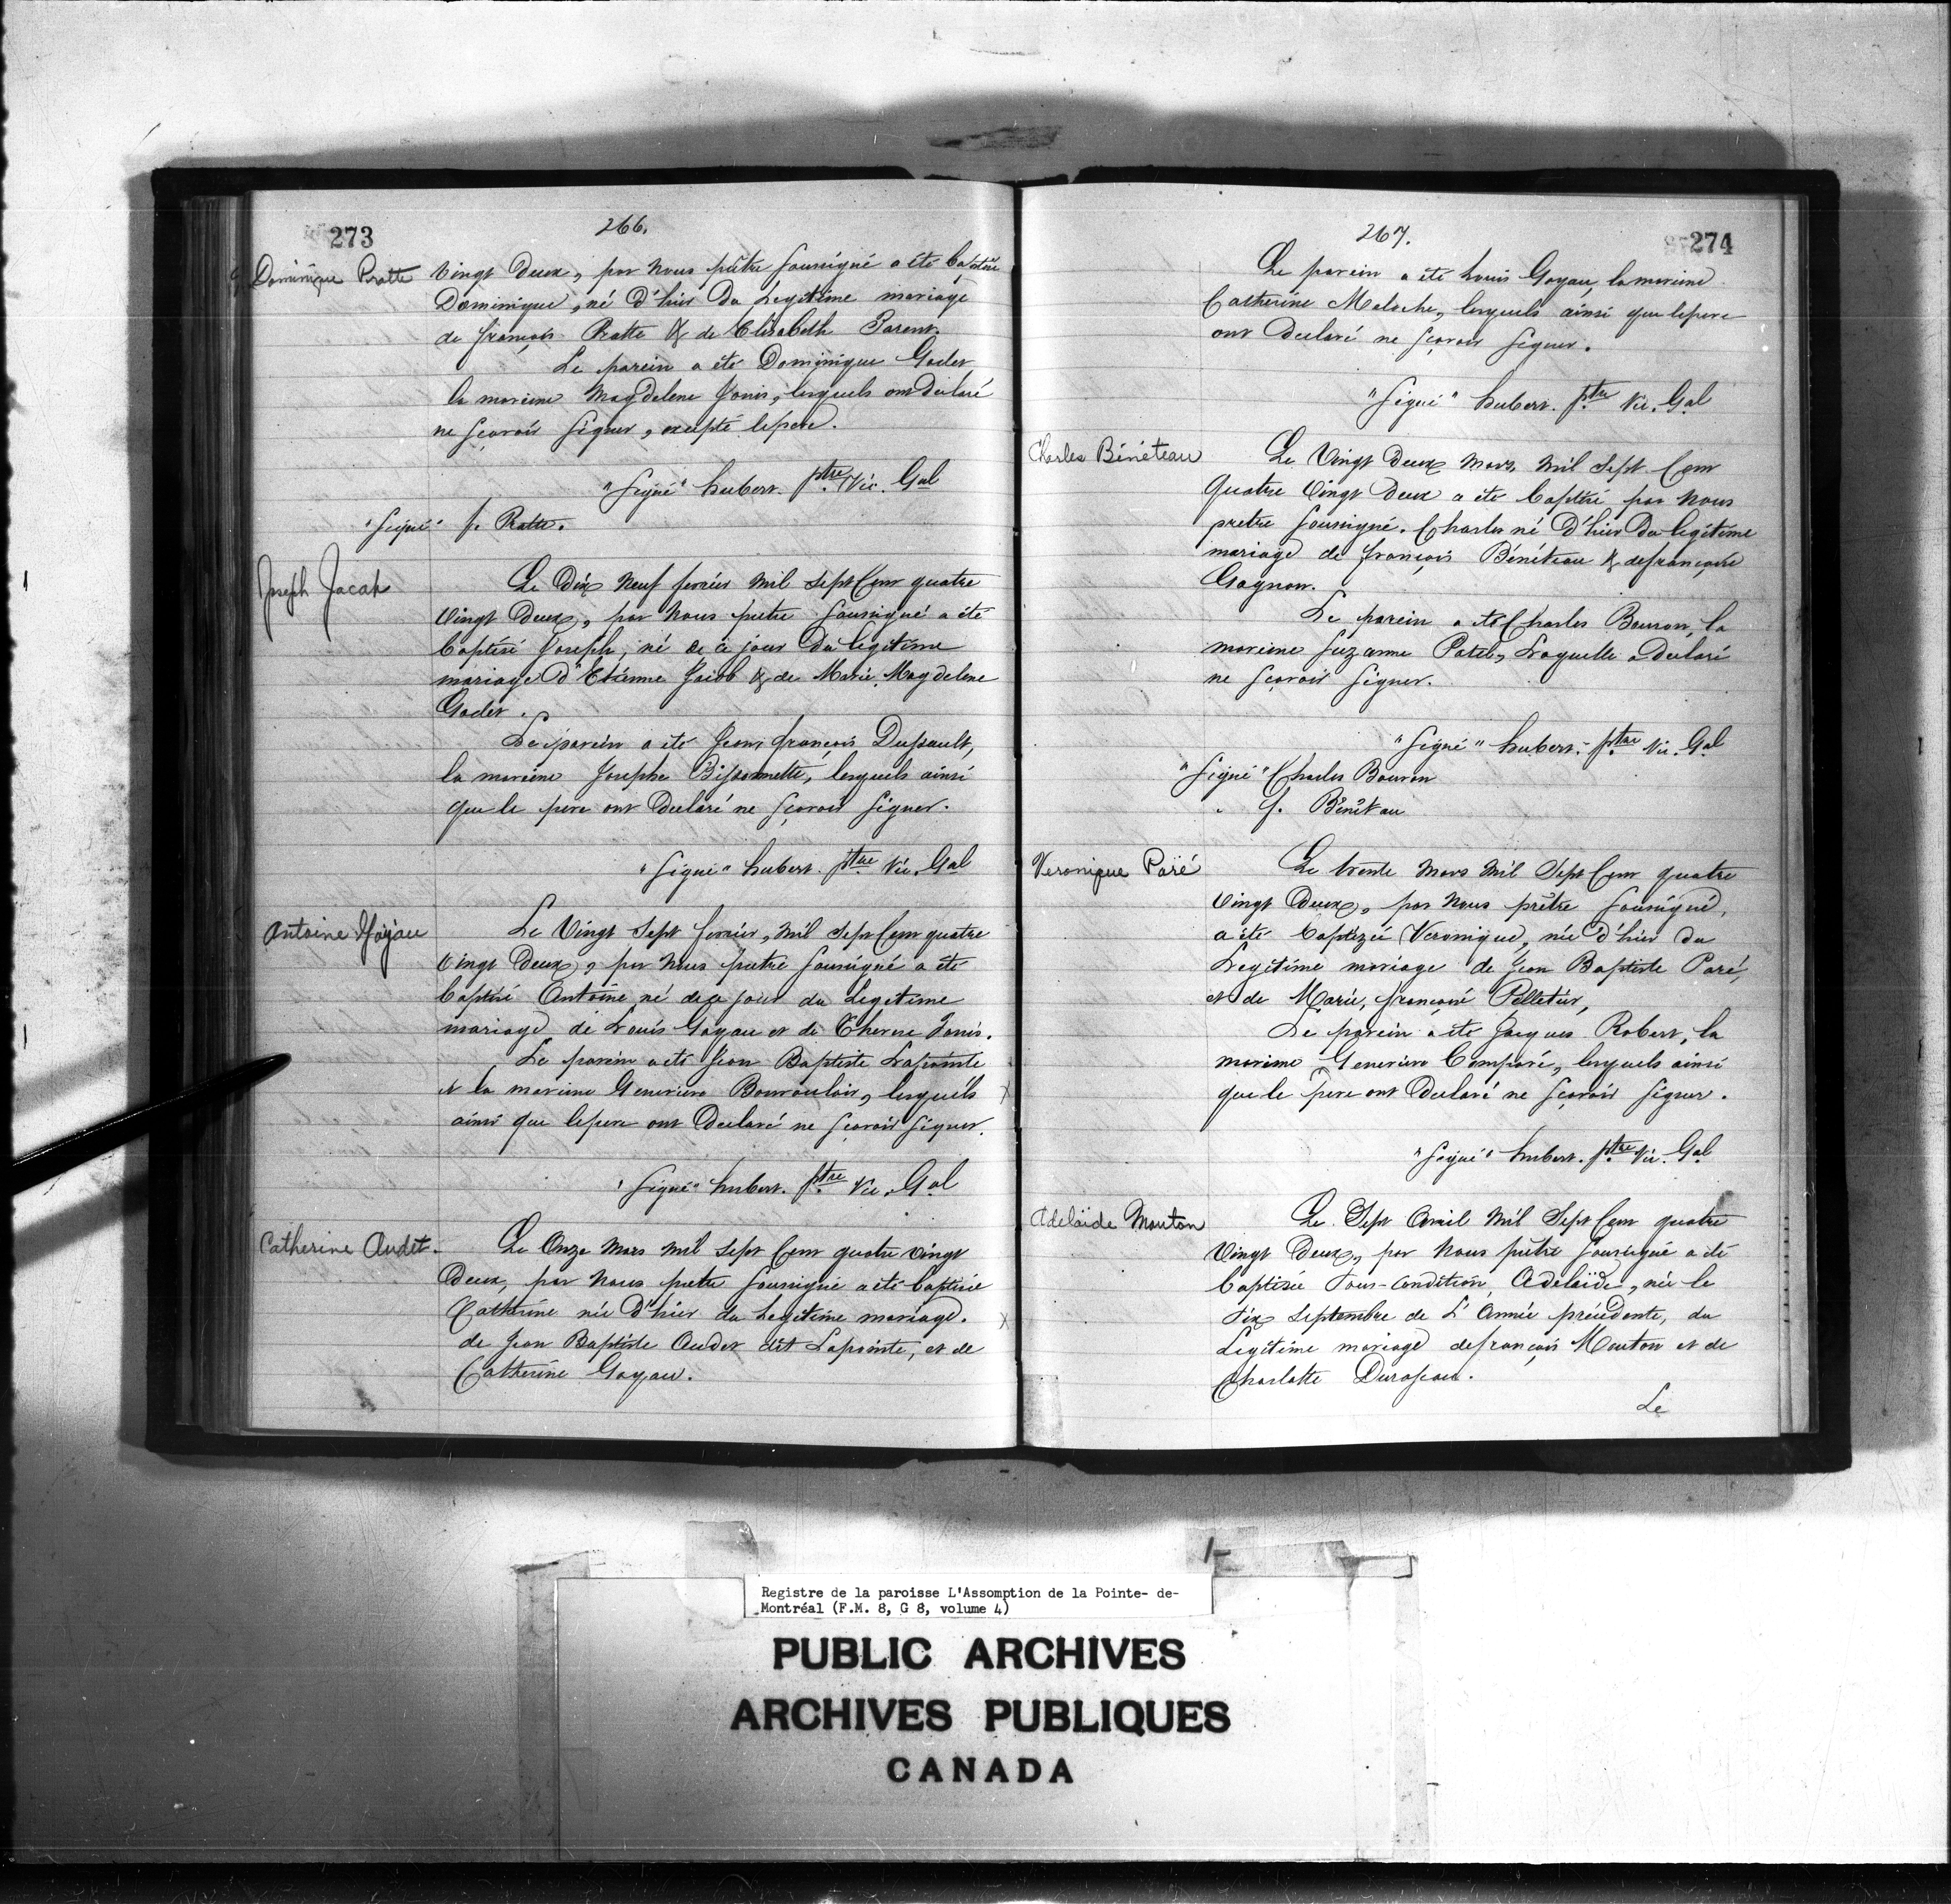 273
266.
Dominique Pratte
Vingt Deux, par Nous prêtre soussigné a été Baptisé
Dominique, né d'hier Du Legitime mariage
de françois Pratte & de Elisabeth Parent.
Le parein a été Dominique Godet
la mareine Magdelene Janis, lesquels ont declaré
ne sçavoir signer, excepté le pere.
"Signé" hubert. ptre Vic. Gal
"Signé" f. Pratte.
Joseph Jacob
Le Dix Neuf fevrier Mil Sept Cent quatre
Vingt Deux, par Nous pretre soussigné a été
Baptisé Joseph, né de ce jour Du legitime
mariage D'Etienne Jacob & de Marie Magdelene
Godet.
Le parein a été Jean françois Dupault,
la mareine Josephe Bissonnette, lesquels ainsi
que le pere ont Declaré ne sçavoir signer.
"Signé" hubert. ptre Vic. Gal
Antoine Goyau
Le Vingt Sept fevrier, Mil Sept Cent quatre
Vingt Deux, par Nous pretre soussigné a été
Baptisé Antoine né de ce jour du Legitime
mariage de Louis Goyau et de Therese Janis.
Le parein a été Jean Baptiste Lapointe
et la mareine Genevieve Bourouloir, lesquels x
ainsi que le pere ont Declaré ne sçavoir signer.
"Signé" hubert. ptre Vic. Gal
Catherine Audet.
Le Onze Mars Mil Sept Cent quatre Vingt
Deux, par Nous pretre soussigné a été Baptisée
Catherine née D'hier du Legitime mariage. x
de Jean Baptiste Audet dit Lapointe, et de
Catherine Goyau.
267.
274
Le parein a été Louis Goyau, la mareine
Catherine Meloche, lesquels ainsi que le pere
ont Declaré ne sçavoir signer.
"Signé" hubert. ptre Vic. Gal
Charles Bénéteau
Le Vingt Deux Mars Mil Sept Cent
Quatre Vingt Deux a été Baptisé par Nous
pretre soussigné. Charles né D'hier Du legitime
mariage de françois Bénéteau & de françoise
Gagnon.
Le parein a été Charles Bouron, la
mareine Suzanne Patel, Laquelle a Declaré
ne sçavoir signer.
"Signé" hubert. ptre Vic. Gal
"Signé" Charles Bouron
" f. Bénéteau
Veronique Paré
Le trente Mars Mil Sept Cent quatre
Vingt Deux, par Nous prêtre soussigné,
a été Baptizée Veronique, née d'hier du
Legitime mariage de Jean Baptiste Paré,
et de Marie, françoise Pelletier,
Le parein a été Jacques Robert, la
mareine Genevieve Comparé, lesquels ainsi
que le pere ont Declaré ne sçavoir signer.
"Signé" hubert. ptre Vic. Gal
Adelaïde Mouton
Le Sept Avril Mil Sept Cent quatre
Vingt Deux, par Nous prêtre soussigné a été
Baptisée Sous-Condition, Adelaïde, née le
dix Septembre de L'Année précédente, du
Legitime mariage de françois Mouton et de
Charlotte Duropeau.
Le
Registre de la paroisse L'Assomption de la Pointe- de-
Montréal (F.M. 8, G 8, volume 4)
PUBLIC ARCHIVES
ARCHIVES PUBLIQUES
CANADA